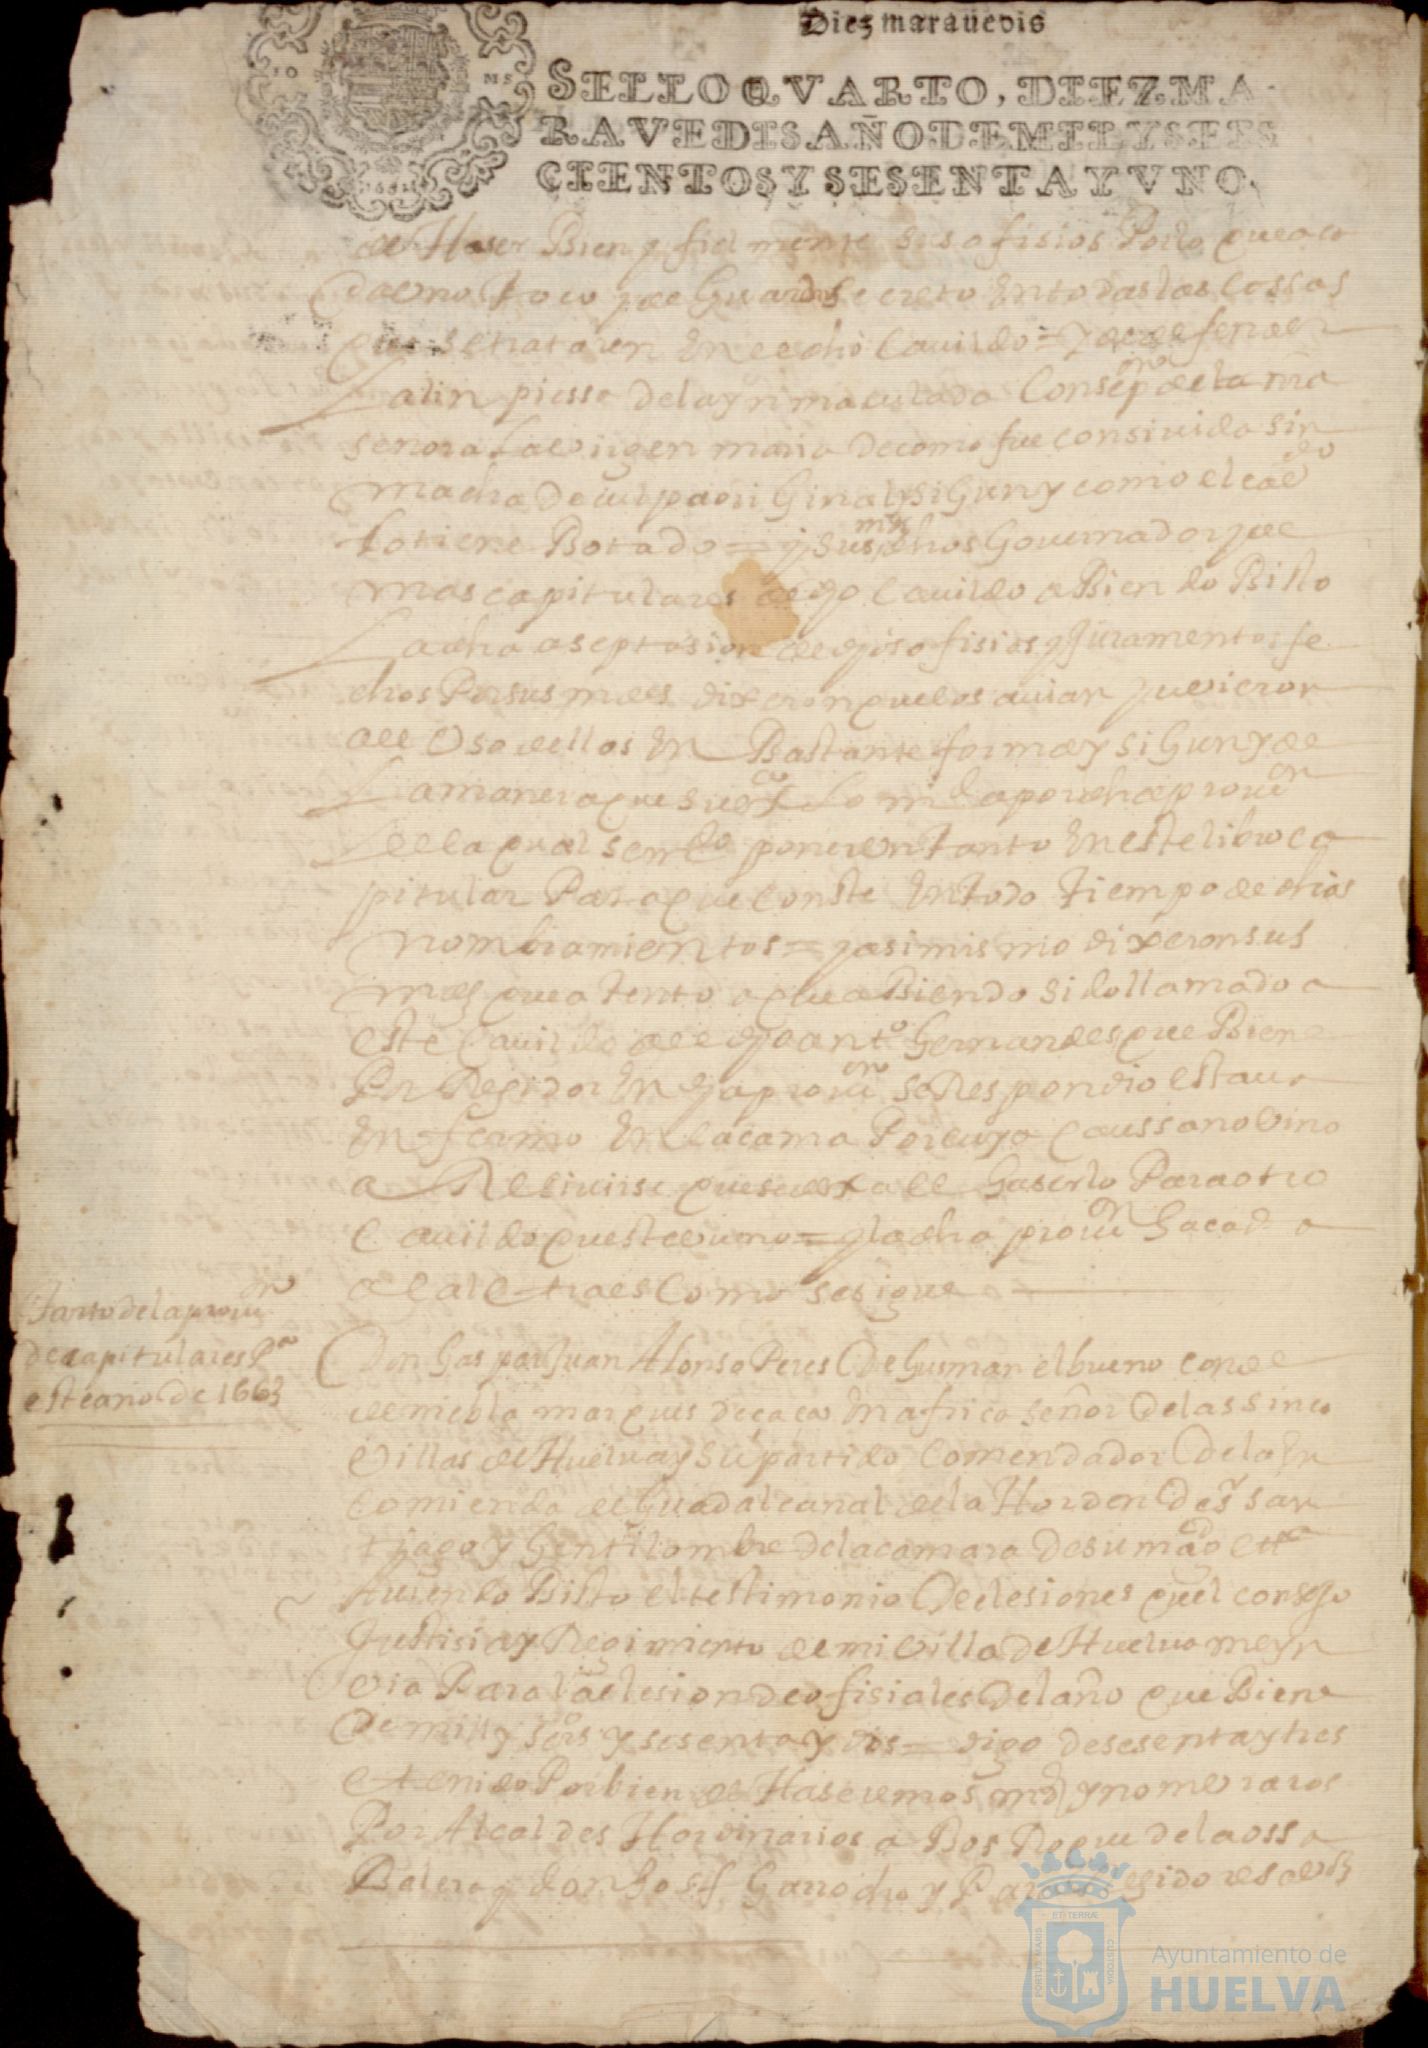 Diez marauedis
SELLO QVARTO, DIEZ MA
RAVEDIS AÑO DE MIL Y SEIS
CIENTOS Y SESENTA Y VNO.
de Haser Bien y fielmente sus ofisios Por lo que a ca
da uno toco y de Guardar Secreto En todas las Cossas
que se trataren En el dho Cauildo = y de defender
La linpiessa de la ynmaculada Consepon de la nra
señora La Virgen maria de como fue consiuida sin
macha de culpa ori Ginal y siGun y como el caudo
lo tiene Botado = y sus mds dhos Gouernador y de
mas capitulares Cauildo aBiendo Bisto
La dha aseptasion de ofisios y Juramentos fe
chos Por sus mdes dixeron que los auian
al Vso dellos En Bastante forma y siGun y de
La manera que su exca Lo mda por dha prouon
de la qual se poner vn tanto En este libro ca
pitular Para que Conste En todo tiempo de dhos
nombramientos = y asimismo dixeron sus
mds que atento a que aBiendo sido llamado a
este Cauildo anto Hernandes que Biene
Por Regidor En prouon se Respondio estaua
Enfermo En la cama Por cuya Caussa no Vino
a Reciuirse Haserlo Para otro
Cauildo = y la dha prouon Sacada
a la letra es Como se sigue
Tanto de la prouon
de capitulares Pa
este año de 1663
Don Gaspar Juan Alonso Peres De Gusman el bueno conde
de niebla marques de caça En africa Señor De las sinco
Villas de Huelua y su partido Comendador De la En
comienda de Guadalcanal de la Horden De s. San
tiago y Gentilombre de la camara de su magd etta
Auiendo Bisto el testimonio De elesiones quel consejo
Justisia y Regimiento de mi Villa de Huelua me yn
via Para la elesion de ofisiales Del año que Biene
De mill y seis y sesenta y dos = digo de sesenta y tres
e tenido Por bien de Haseremos md y nomeraros
Por Alcaldes Hordinarios a Bos Roque de la ossa
Balera y don Josef Garrocho y Para Regidores a
PORTUS MARIS ET TERRÆ CUSTODIA
Ayuntamiento de
HUELVA